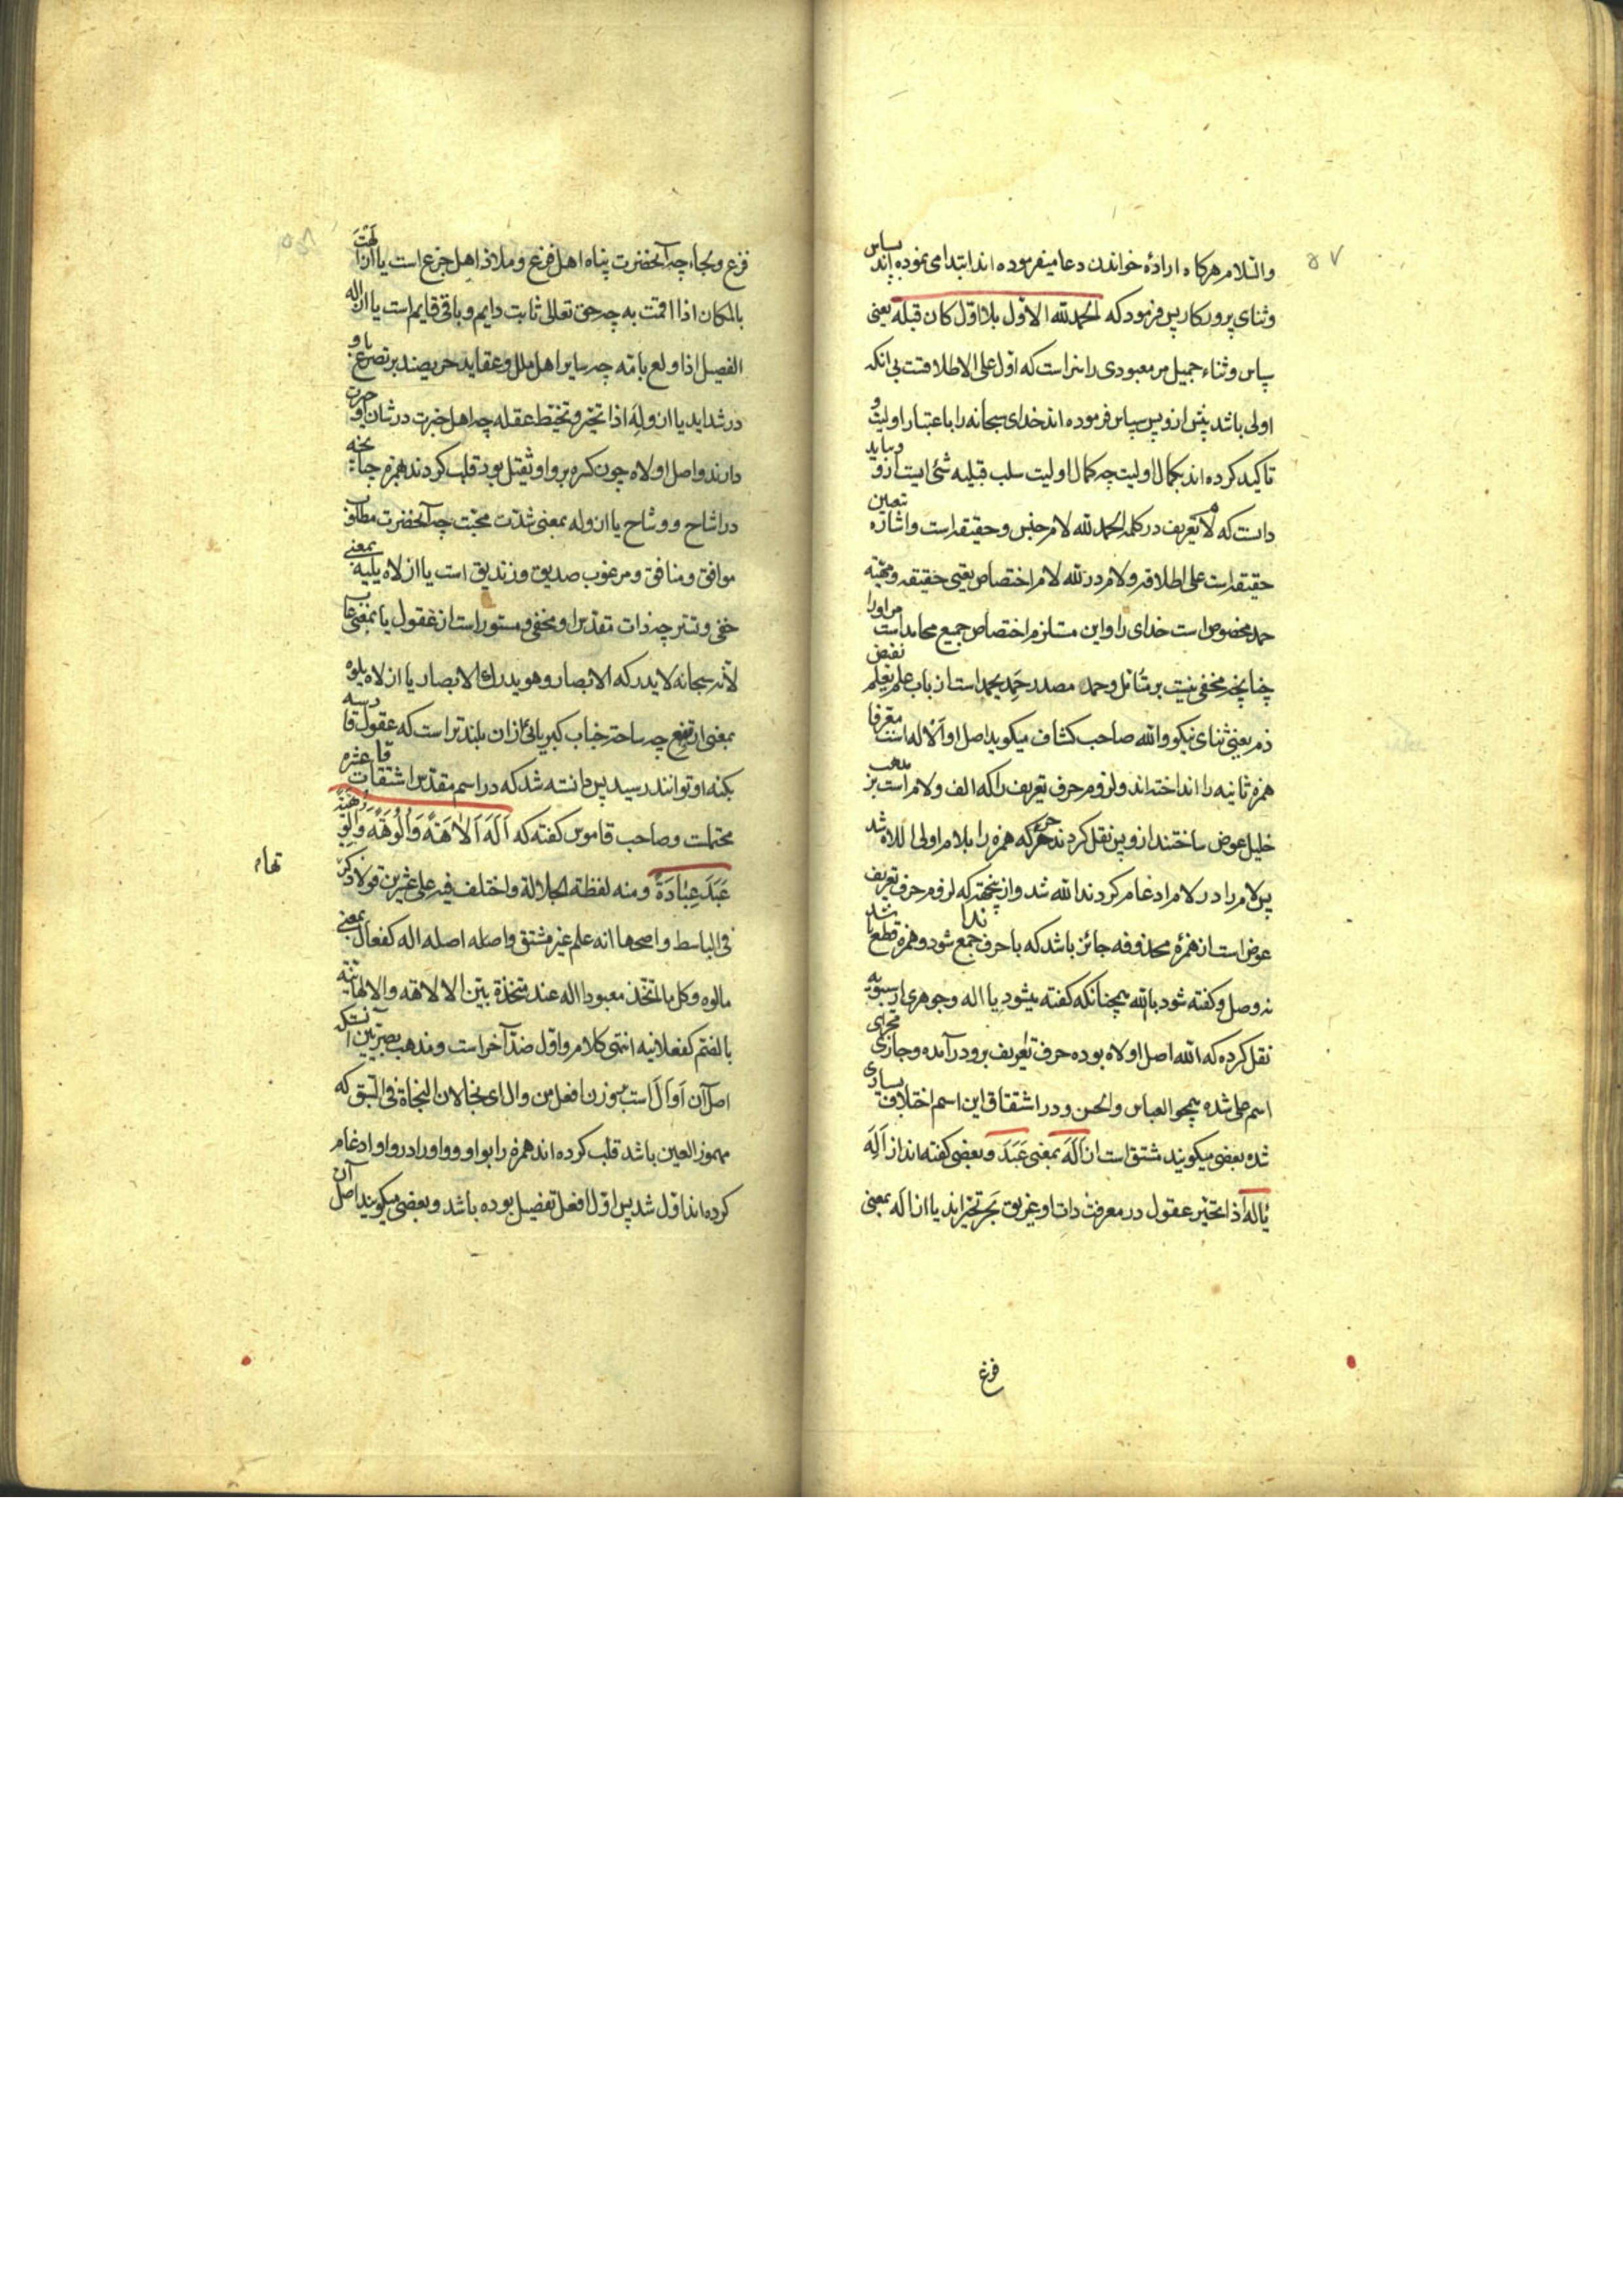 ۵۷
والسلام هرگاه ارادهٔ خواندن دعا میفرموده‌اند ابتدا می‌نموده‌اند بسپاس
وثنای پروردکار پس فرمود که الحمد لله الاول بلا اول کان قبله یعنی
سپاس وثناء جمیل مر معبودی را سزاست که اول علی الاطلاقست بی انکه
اولی باشد پیش ازو پس سپاس فرموده‌اند خدای سبحانه را باعتبار اولیت و
تاکید کرده‌اند بکمال اولیت چه کمال اولیت سلب قبلیه شئ است ازو و بباید
دانست که لام تعریف در کلمه الحمد لله لام جنس وحقیقه است واشاره تعیین
حقیقه است علی اطلاقه ولام در لله لام اختصاص یعنی حقیقه
حمد مخصوص است خدای را واین مستلزم اختصاص جمیع محامد است مر اورا
چنانچه مخفی نیست بر متأمل وحمد مصدر حمد یحمد است از باب علم یعلم نقیض
ذم یعنی ثنای نیکو والله صاحب کشاف میکوید اصل او الاله است معرفا
همزه ثانیه را انداخته‌اند ولزوم حرف تعریف را که الف ولام است بمذهب
خلیل عوض ساختند ازو پس نقل کردند حرکه همزه را بلام اولی اللاه شد
پس لام را در لام ادغام کردند الله شد واز اینجهة که لزوم حرف تعریف
عوض است از همزهٔ محذوفه جائز باشد که با حرف ندا جمع شود وهمزه قطع باشد
نه وصل وکفته شود یا الله همچنانکه کفته میشود یا اله وجوهری از سیبویه
نقل کرده که الله اصل او لاه بوده حرف تعریف برو درآمده وجاری مجرای
اسم علی شده همچو العباس والحسن ودر اشتقاق این اسم اختلاف بسیاری
شده بعضی میکویند مشتق است از اَلَهَ بمعنی عَبَدَ وبعضی کفته‌اند از اَلِهَ
یَألَه اذا تحیر عقول در معرفت ذات او غریق بحر تحیراند یا از اله بمعنی
فزع
فزع ولجاء چه آنحضرت پناه اهل فزع وملاذ اهل جزع است یا از الهت
بالمکان اذا اقمت به چه حق تعالی ثابت دایم وباقی قایم است یا از اله
الفصیل اذا ولع بامه چه سایر اهل ملل وعقاید حریصند بر تضرع باو
در شداید یا از وله اذا تحیر وتخبط عقله چه اهل خبرت در شان او حیرت
دارند واصل او لاه چون کسره بر واو ثقیل بود قلب کردند بهمزه چنانچه
در اشاح ووشاح یا از وله بمعنی شدت محبت چه آنحضرت مطلوب
موافق ومنافق ومرغوب صدیق وزندیق است یا از لاه یلیه بمعنی
خفی وتستر چه ذات مقدس او مخفی ومستور است از عقول یا بمعنی غاب
لانه سبحانه لا یدرکه الابصار وهو یدرک الابصار یا از لاه یلوه
بمعنی ارتفع چه ساحت جناب کبریائی ازان بلندتر است که عقول قادسه
بکنه او توانند رسید پس دانسته شد که در اسم مقدس اشتقاقات عشره
محتملست وصاحب قاموس کفته که اَلَهَ اَلاٰهَةً وَاُلُوهَةً وَاُلُوهِیَّةً
عَبَدَ عِبٰادَةً ومنه لفظة الجلالة واختلف فیه علی عشرین قولا ذکر
تها
فی الباسط واصحها انه علم غیر مشتق واصله اله کفعال بمعنی
مالوه وکل ما اتخذ معبودا اله عند متخذه بین الالاهة والالهانیه
بالضم کفعلانیه انتهی کلامه واول ضد آخر است ومذهب بصریین آنستکه
اصل آن اَوْاَل است بر وزن افعل من وال ای نجا لان النجاة فی السبق که
مهموز العین باشد قلب کرده‌اند همزه را بواو وواو را در واو ادغام
کرده‌اند اول شد پس اول افعل تفضیل بوده باشد وبعضی میکویند اصل آن